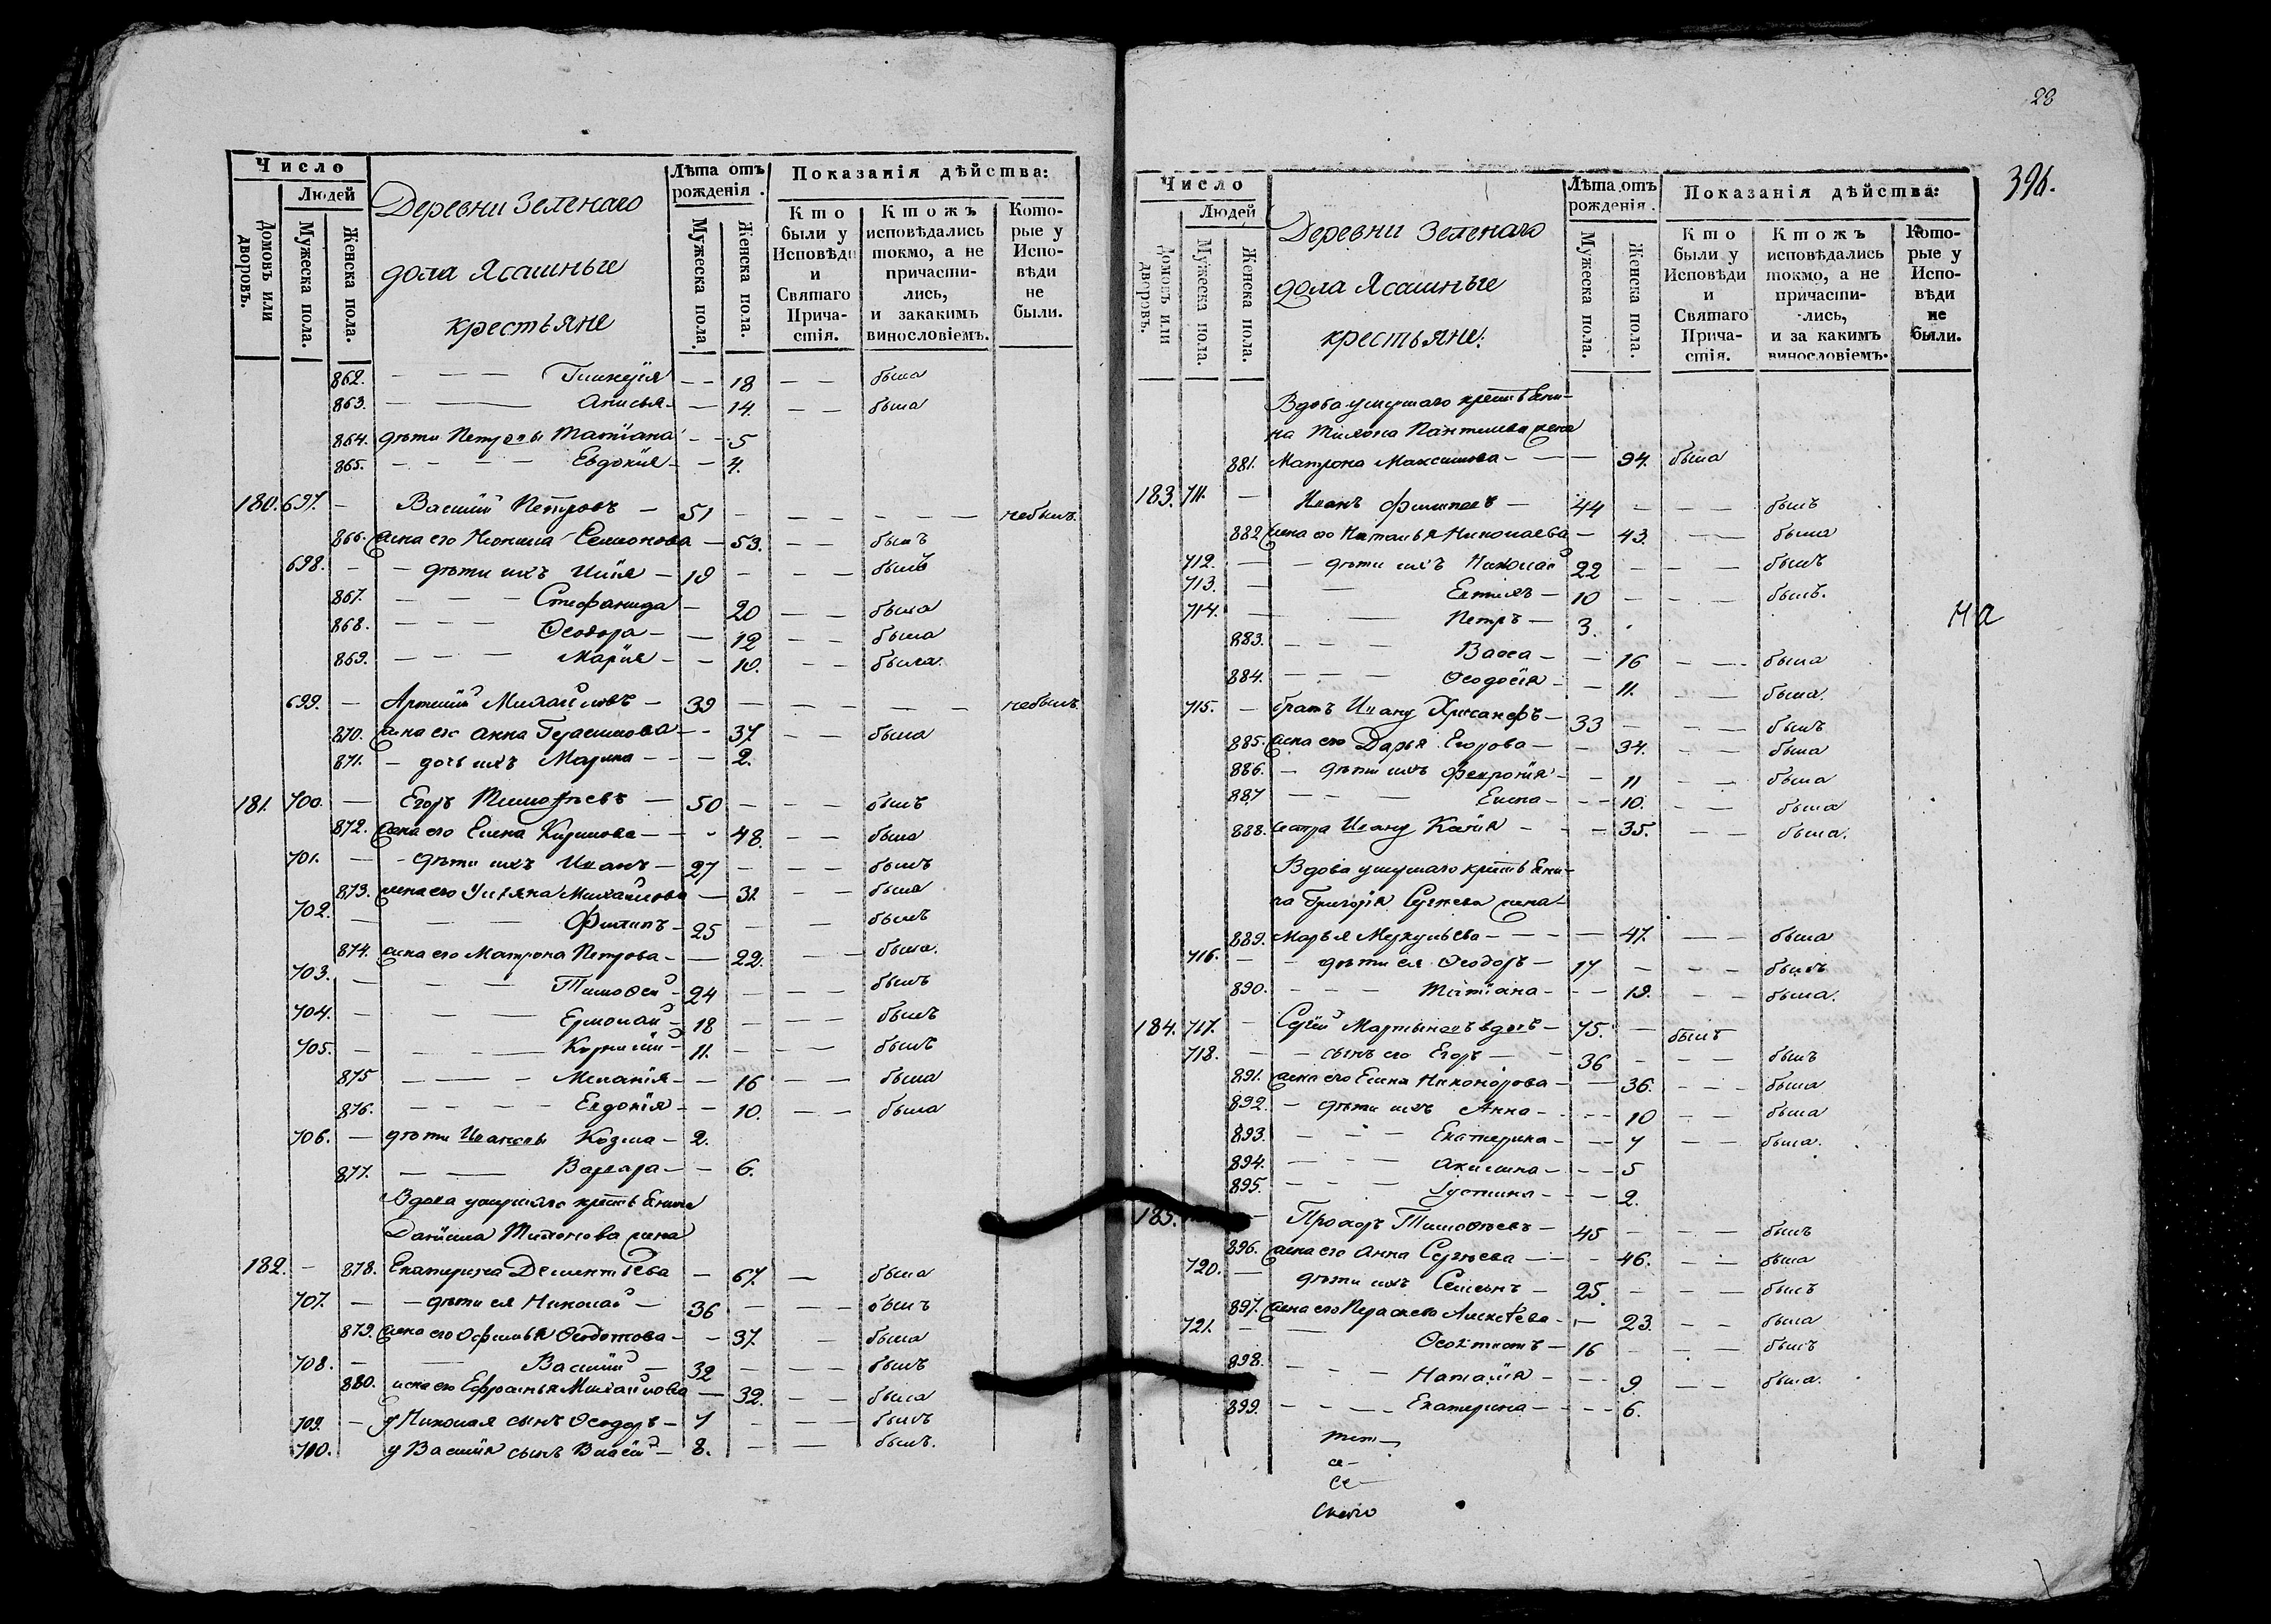 Число
Людей
Домовъ или дворовъ.
Мужеска пола.
Женска пола.
Деревни Зеленаго
дола Ясашныѣ
крестьяне
Лѣта отъ
рожденія.
Мужеска пола.
Женска пола.
Показанія дѣйства:
Кто
были у
Исповѣди
и
Святаго
Прича-
стія.
Ктожъ
исповѣдались
токмо, а не
причасти-
лись,
и закакимъ
винословіемъ.
Кото-
рые у
Испо-
вѣди
не
были.
862. Гликерія 18 была
863. Анисья 14. была
864. дѣти Петровы Татіана 5
865. Евдокія 4.
180. 697. Василій Петровъ 51 небылъ.
866. жена его Неонила Семионова 53. былъ
698. дѣти ихъ Илія 19 былъ
867. Стефанида 20 была
868. Ѳеодора 12 была
869. Марія 10. была.
699. Артемій Михайловъ 39 небылъ.
870. жена его Анна Герасимова 37 была
871. дочь ихъ Марина 2.
181. 700. Егоръ Тимоѳѣевъ 50 былъ
872. жена его Елена Кирилова 48. была
701. дѣти ихъ Иванъ 27 былъ
873. жена его Ульяна Михайлова 31. была
702. Филипъ 25 былъ
874. жена его Матрона Петрова 22. была.
703. Тимоѳей 24 былъ
704. Ермолай 18 былъ
705. Корнилій 11. былъ
875 Меланія 16 была
876. Евдокія 10. была
706. дѣти Ивановы Козма 2.
877. Варвара 6.
Вдова умершаго крестьѣнина
Даніила Тихонова жена
182. 878. Екатерина Дементьѣва 67. была
707. дѣти ея Николай 36 былъ
879. жена его Ѳофилья Ѳедотова 37. была
708. Василій 32 былъ
880. жена его Ефросинья Михайлова 32. была
709. у Николая сынъ Ѳеодоръ 7 былъ
710. у Василія сынъ Власій 8. былъ.
28
396.
Число
Людей
Домовъ или дворовъ.
Мужеска пола.
Женска пола.
Деревни Зеленаго
дола Ясашныѣ
крестьяне:
Лѣта отъ
рожденія.
Мужеска пола.
Женска пола.
Показанія дѣйства:
Кто
были у
Исповѣди
и
Святаго
Прича-
стія.
Ктожъ
исповѣдались
токмо, а не
причасти-
лись,
и за какимъ
винословіемъ.
Кото-
рые у
Испо-
вѣди
не
были.
Вдова умершаго крестьѣни-
на Тихона Пантилева жена
881. Матрона Максимова 94. была
183. 711. Иванъ Филиповъ 44 былъ
882 жена его Наталья Николаева 43. была
712. дѣти ихъ Николай 22 былъ
713. 10 былъ.
714. Петръ 3.
на
883. Васса 16 была
884. Ѳеодосія 11. была.
715. братъ Ивану Хрисанфъ 33 былъ
885. жена его Дарья Егорова 34. была
886. дѣти ихъ Феврония 11 была
887 Елена 10. была
888. сестра Ивану 35. была.
Вдова умершаго крестьѣни-
на Григорія Сергѣева жена
889. Марья Меркульева 47. была
716. дѣти ея Ѳеодоръ 17 былъ
890. Татіана 19. была.
184. 717. Сергій Мартыновъ вдовъ 75. былъ
718. сынъ его Егоръ 36 былъ
891. жена его Елена Никонорова 36. была
892. дѣти ихъ Анна 10 была
893. Екатерина 7 была.
894. Акилина 5
895. Іустина 2.
185. Прохоръ Тимоѳѣевъ 45 былъ
896. жена его Анна Сергѣева 46. была
720. дѣти ихъ Семенъ 25. былъ
897. жена его Парасковія Алексѣева 23. была
721. Ѳеоктистъ 16 былъ
898. Наталія 9 была.
899. Екатерина 6.
се-